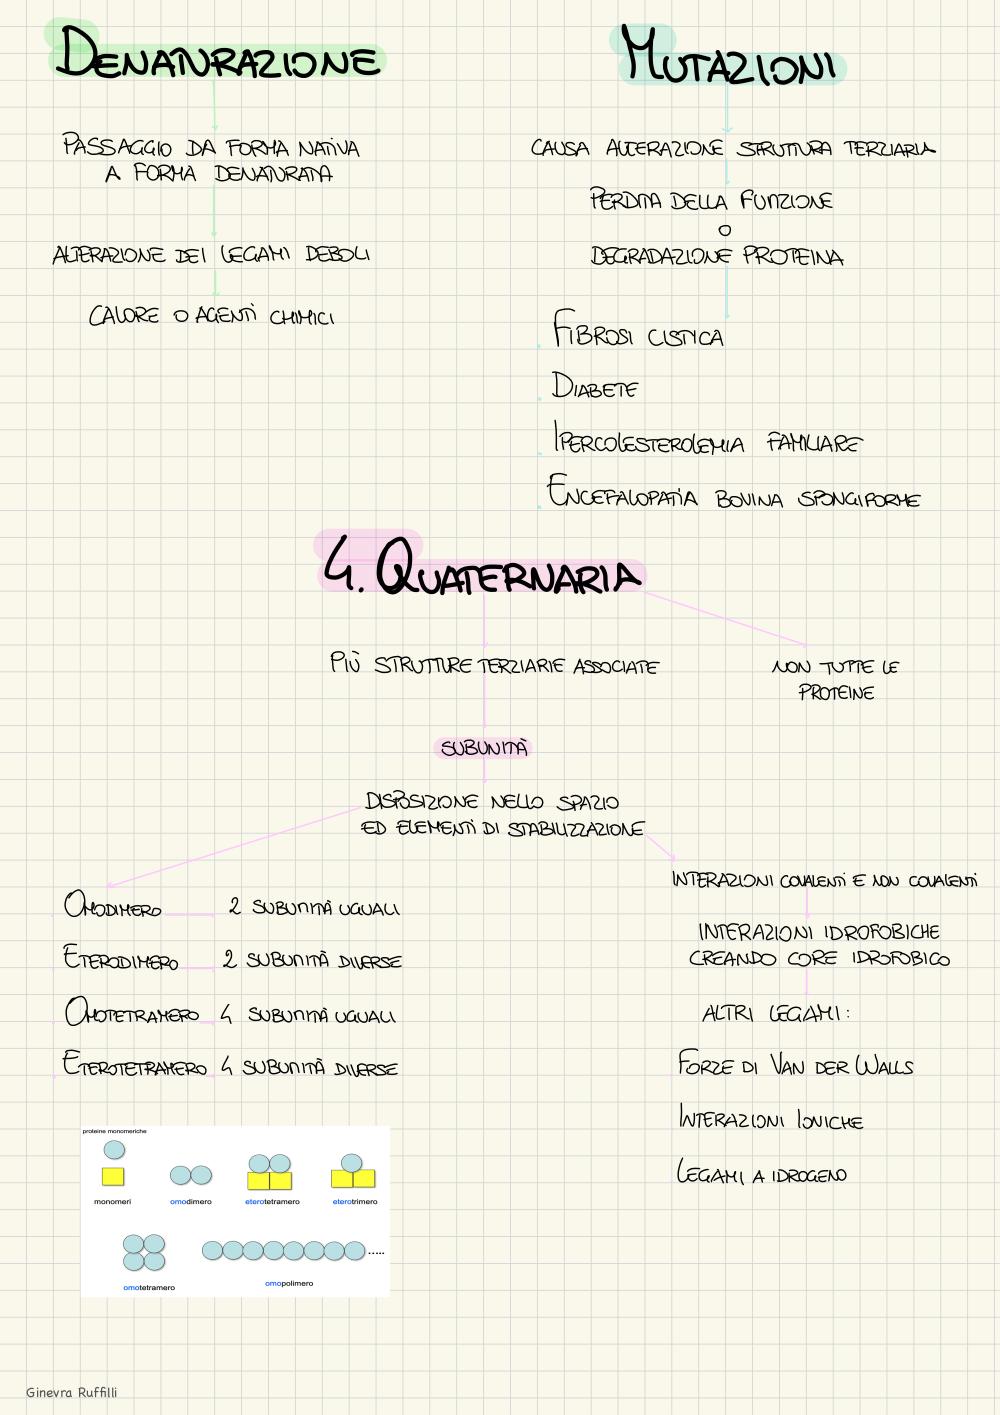 DENATURAZIONE
PASSAGGIO DA FORMA NATIVA
A FORMA DENATURATA
ALTERAZIONE DEI LEGAMI DEBOLI
CALORE O AGENTI CHIMICI
MUTAZIONI
CAUSA ALTERAZIONE STRUTTURA TERZIARIA
PERDITA DELLA FUNZIONE
O
DEGRADAZIONE PROTEINA
FIBROSI CISTICA
DIABETE
IPERCOLESTEROLEMIA FAMILIARE
ENCEFALOPATIA BOVINA SPONGIFORME
4. QUATERNARIA
PIÙ STRUTTURE TERZIARIE ASSOCIATE
NON TUTTE LE
PROTEINE
SUBUNITÀ
DISPOSIZIONE NELLO SPAZIO
ED ELEMENTI DI STABILIZZAZIONE
OMODIMERO 2 SUBUNITÀ UGUALI
ETERODIMERO 2 SUBUNITÀ DIVERSE
OMOTETRAMERO 4 SUBUNITÀ UGUALI
ETEROTETRAMERO 4 SUBUNITÀ DIVERSE
INTERAZIONI COVALENTI E NON COVALENTI
INTERAZIONI IDROFOBICHE
CREANDO CORE IDROFOBICO
ALTRI LEGAMI:
FORZE DI VAN DER WALLS
INTERAZIONI IONICHE
LEGAMI A IDROGENO
proteine monomeriche
monomeri omodimero eterotetramero eterotrimero
.....
omotetramero omopolimero
Ginevra Ruffilli